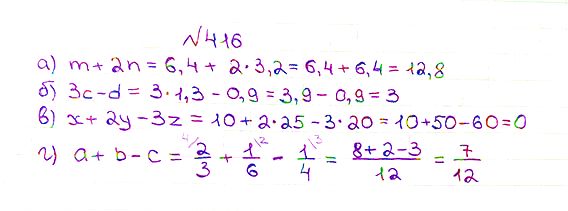 №416
а) m + 2n = 6,4 + 2·3,2 = 6,4 + 6,4 = 12,8
б) 3c - d = 3·1,3 - 0,9 = 3,9 - 0,9 = 3
в) x + 2y - 3z = 10 + 2·25 - 3·20 = 10 + 50 - 60 = 0
г) a + b - c = 4/ 2/3 + 1/6 \2 - 1/4 \3 = (8 + 2 - 3)/12 = 7/12